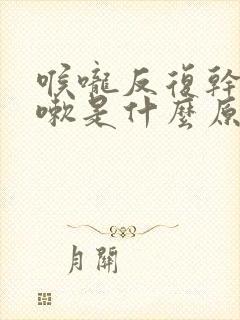 喉嚨反復幹
嗽是什麼原
月關